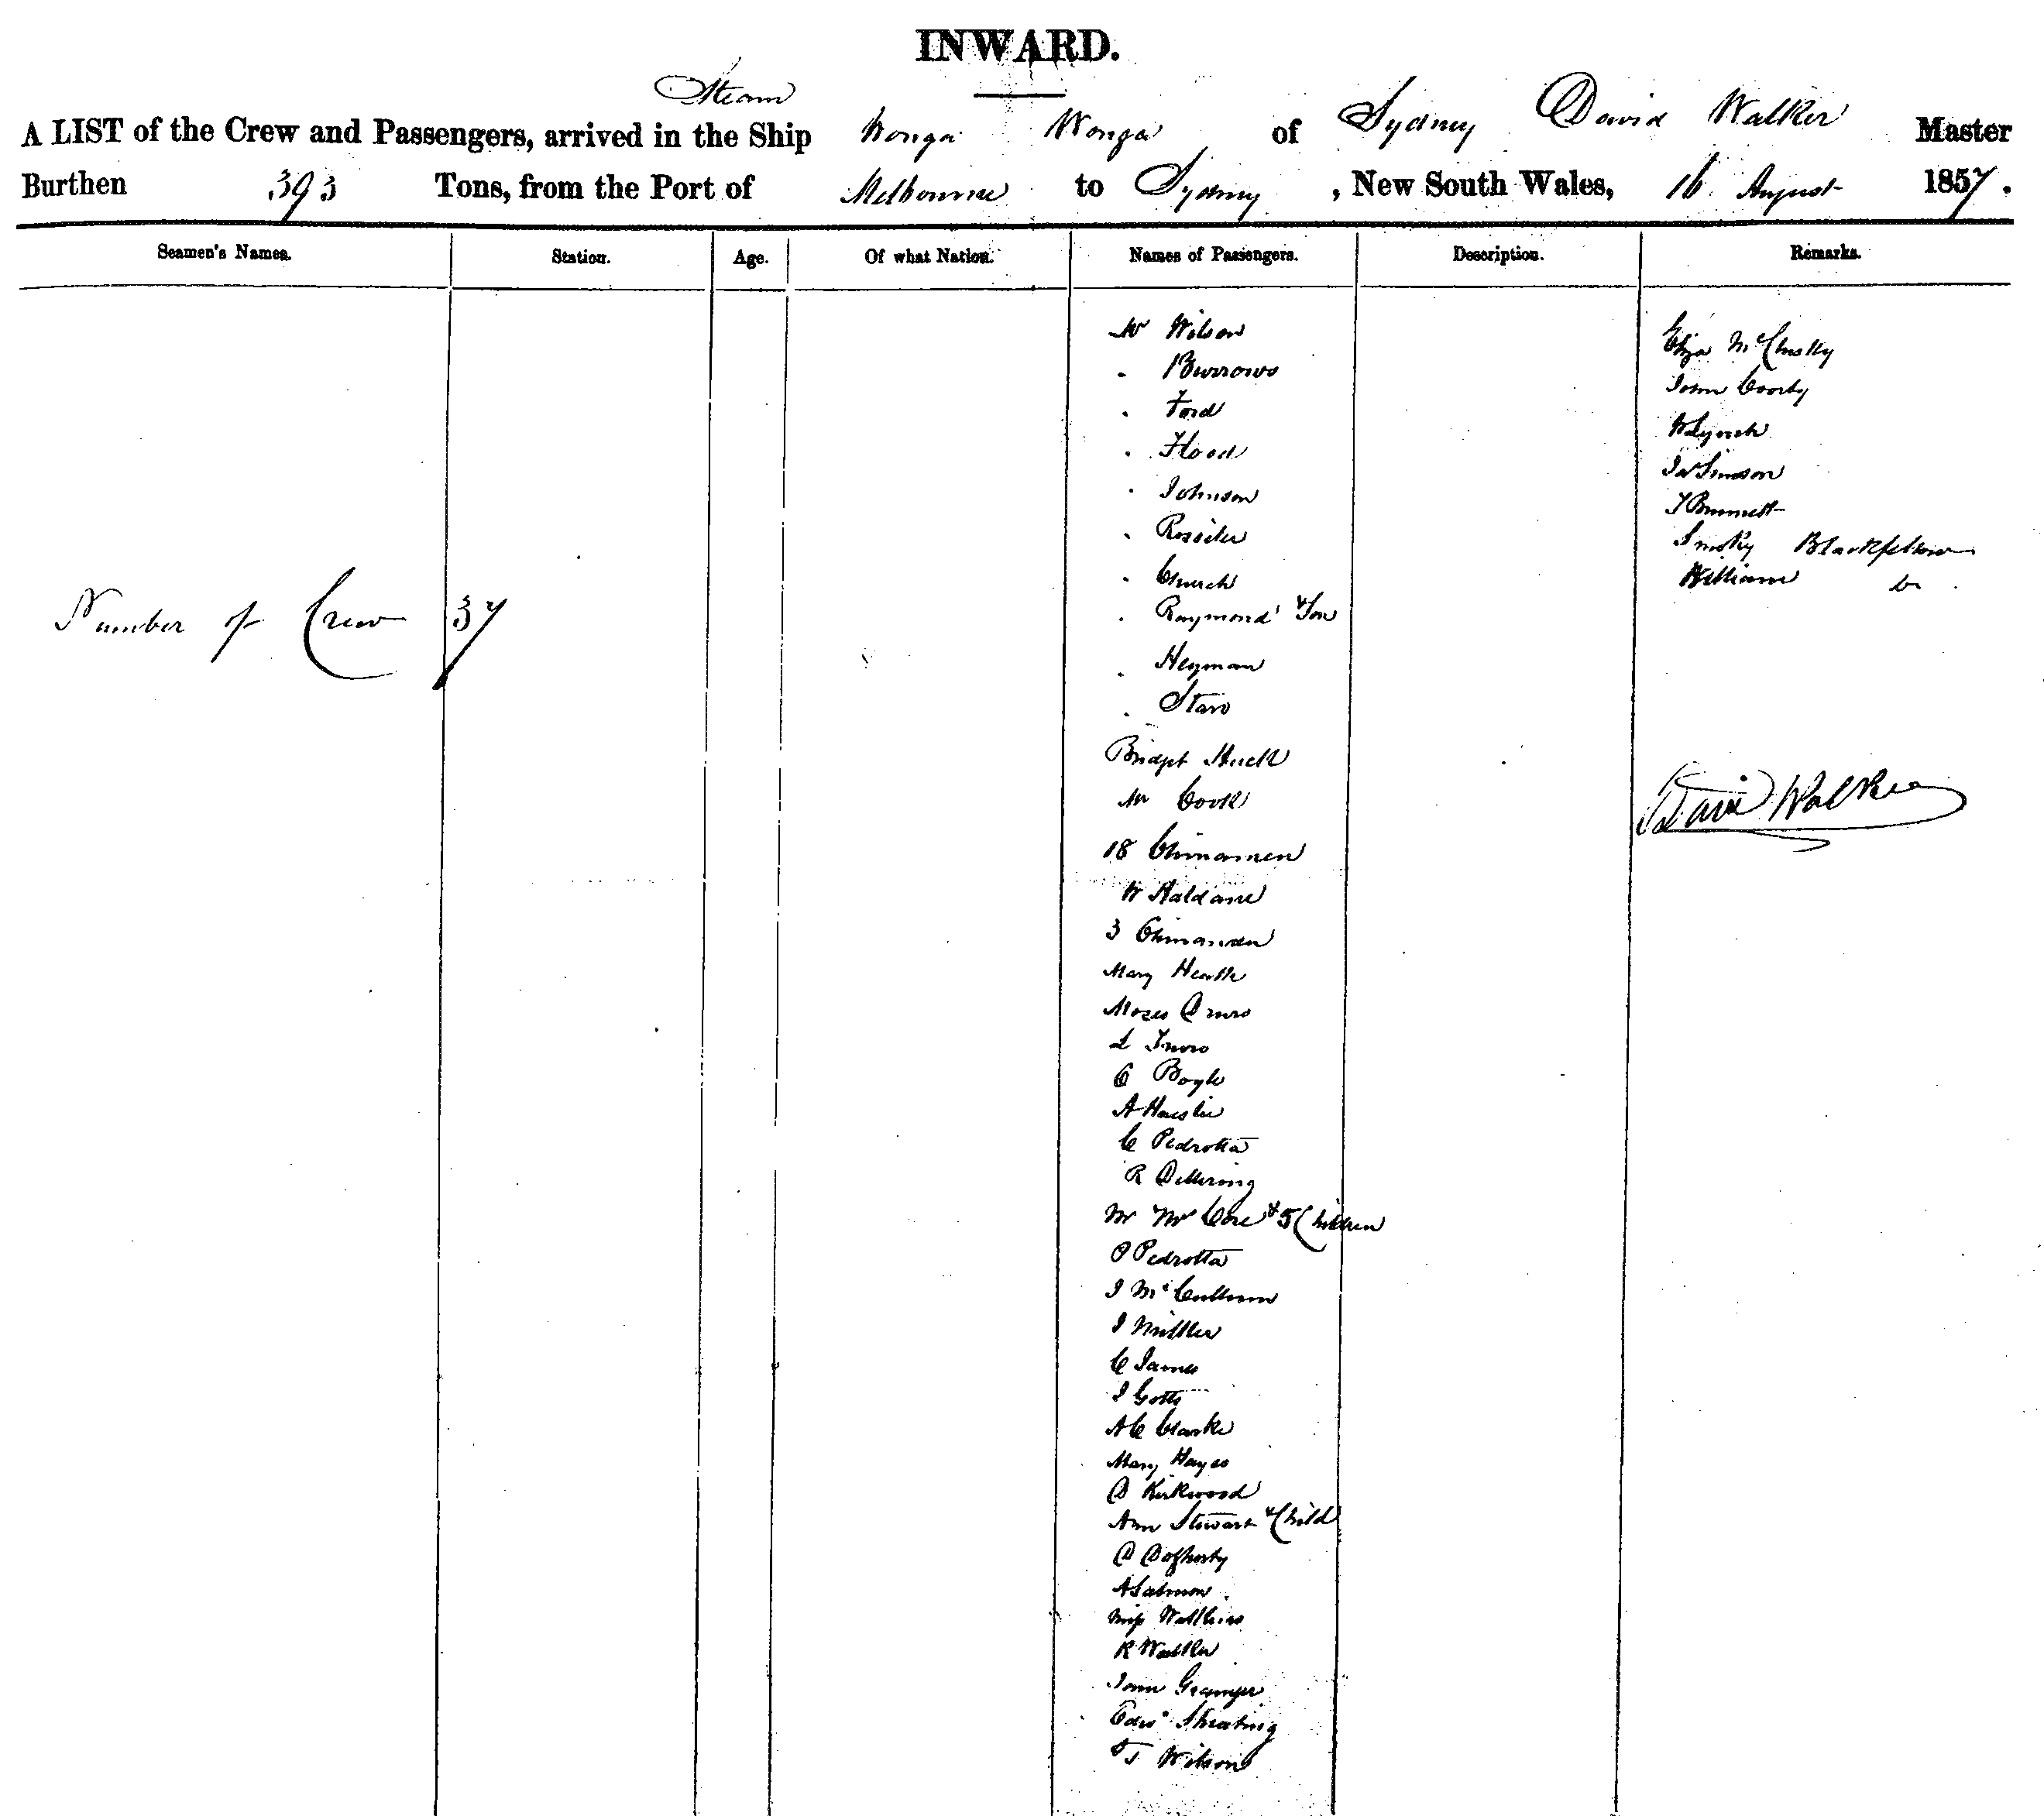 INWARD.
Steam
A LIST of the Crew and Passengers, arrived in the Ship Wonga Wonga of Sydney David Walker Master
Burthen 393 Tons, from the Port of Melbourne to Sydney, New South Wales, 16 August 1857.
Seamen's Names. Station. Age. Of what Nation. Names of Passengers. Description. Remarks.
Number of Crew 37
Mr Wilson
. Burrows
. Ford
. Flood
. Johnson
. Rossiter
. Church
. Raymond & Son
. Heyman
. Starr
Bridget
Mr Cook
18 Chinamen
W Haldane
3 Chinamen
Mary Heath
Moses
L
C Boyle
A
C Pedrotta
R Dettering
Mr Mrs & 5 Children
P Pedrotta
J McCullum
J Miller
C James
J Gotts
A C Clarke
Mary Hayes
D Kirkwood
Ann Stewart & Child
D Dogherty
A Salmon
Miss Watkins
R Walker
John Grainger
Edwd
T Wilson
Eliza
John
W Lynch
T Bennett
Smoky Blackfellow
William Do
David Walker